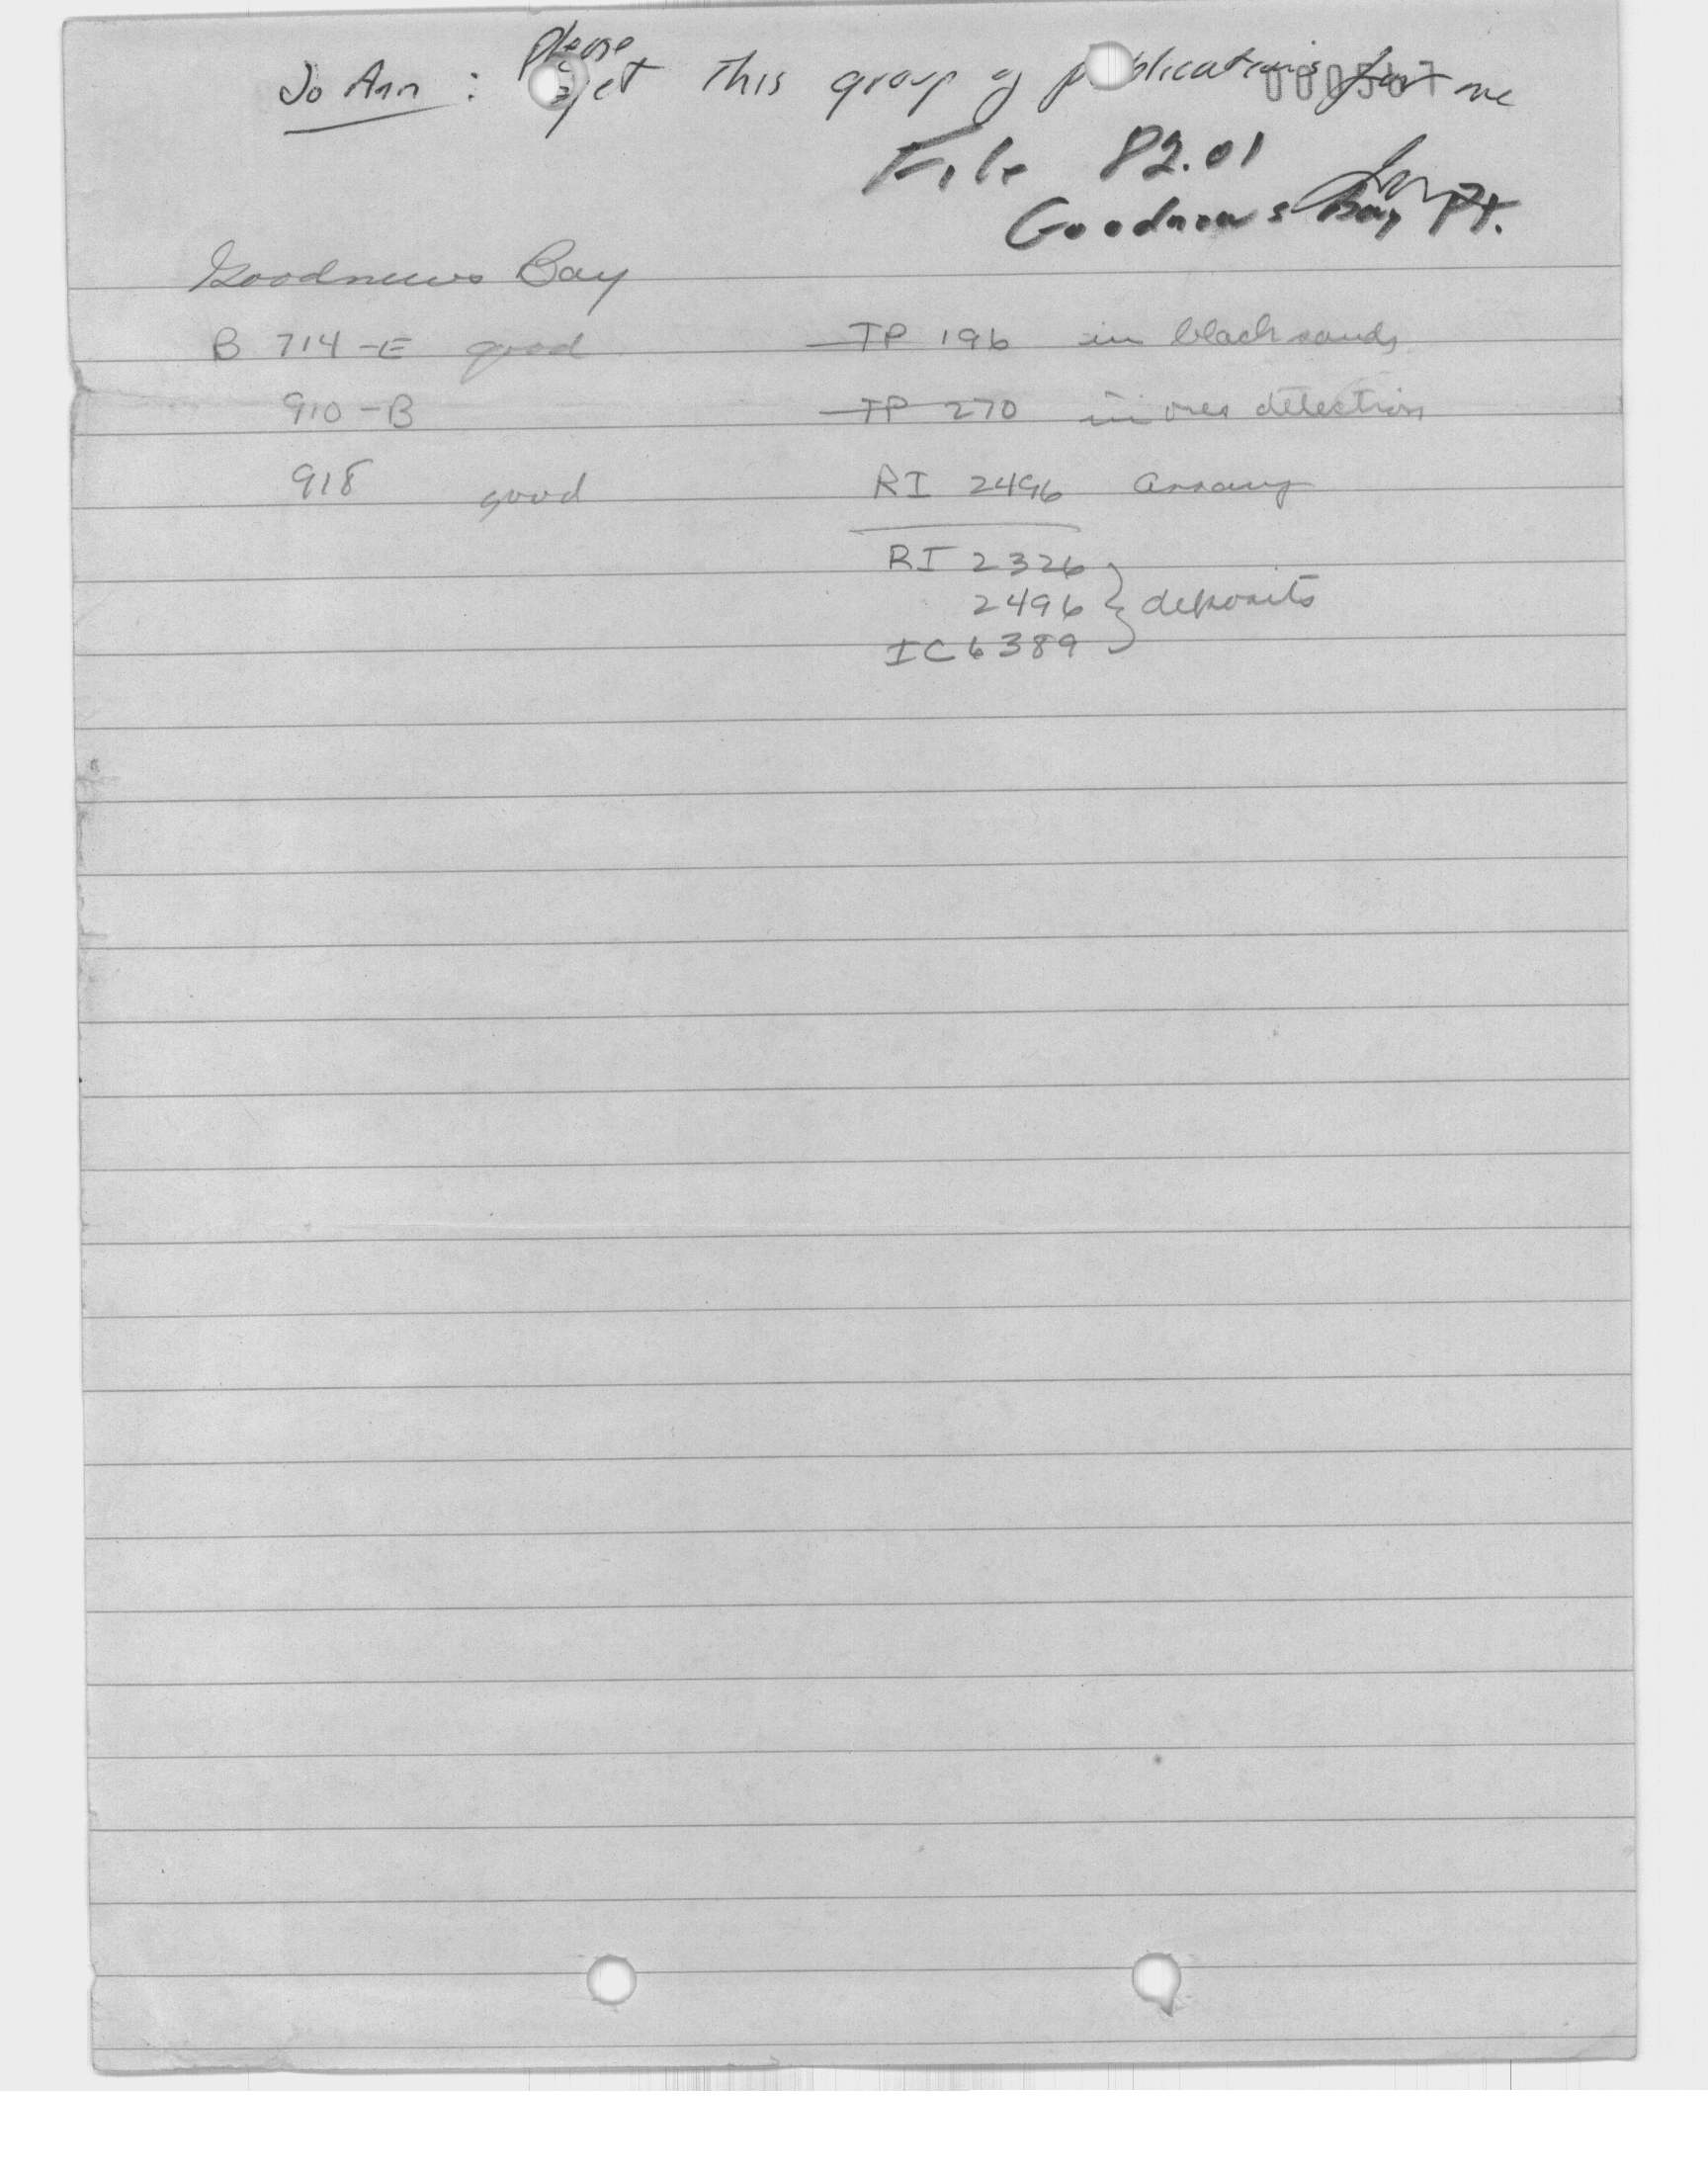 please
Jo Ann : get this group of publications for me
File 82.01
Goodnews Bay Pt.
Goodnews Bay
B 714-E good
910-B
918 good
TP 196 in black sands
TP 270 in ores detection
RI 2496 Assay
RI 2326
2496 } deposits
IC 6389